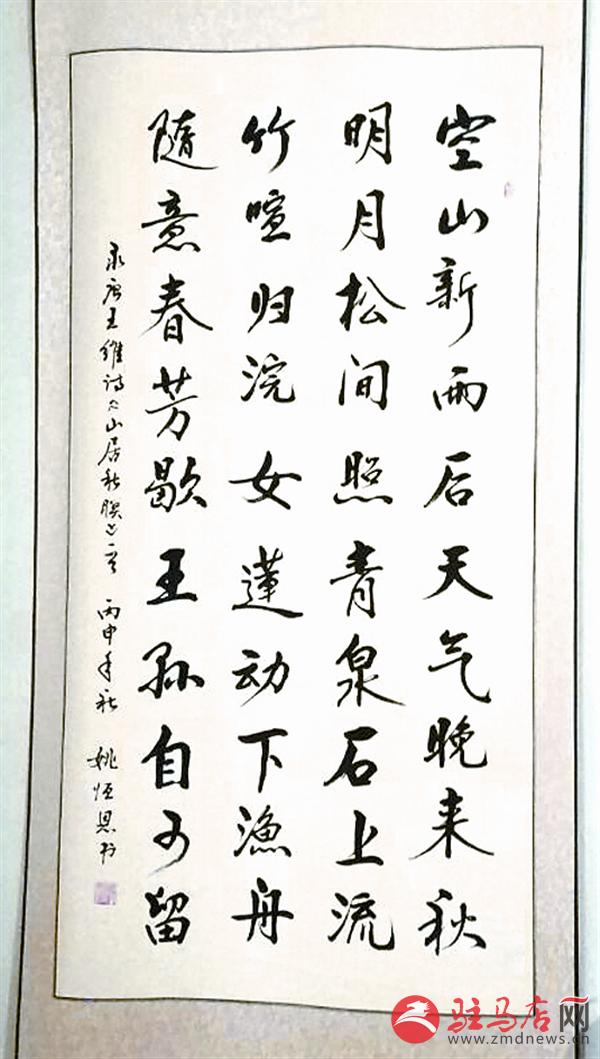 空山新雨后天气晚来秋
明月松间照青泉石上流
竹喧归浣女蓮动下漁舟
随意春芳歇王孙自可留
录唐王维诗《山居秋暝》一首 丙申年秋 姚恒恩书
驻马店网
www.zmdnews.cn